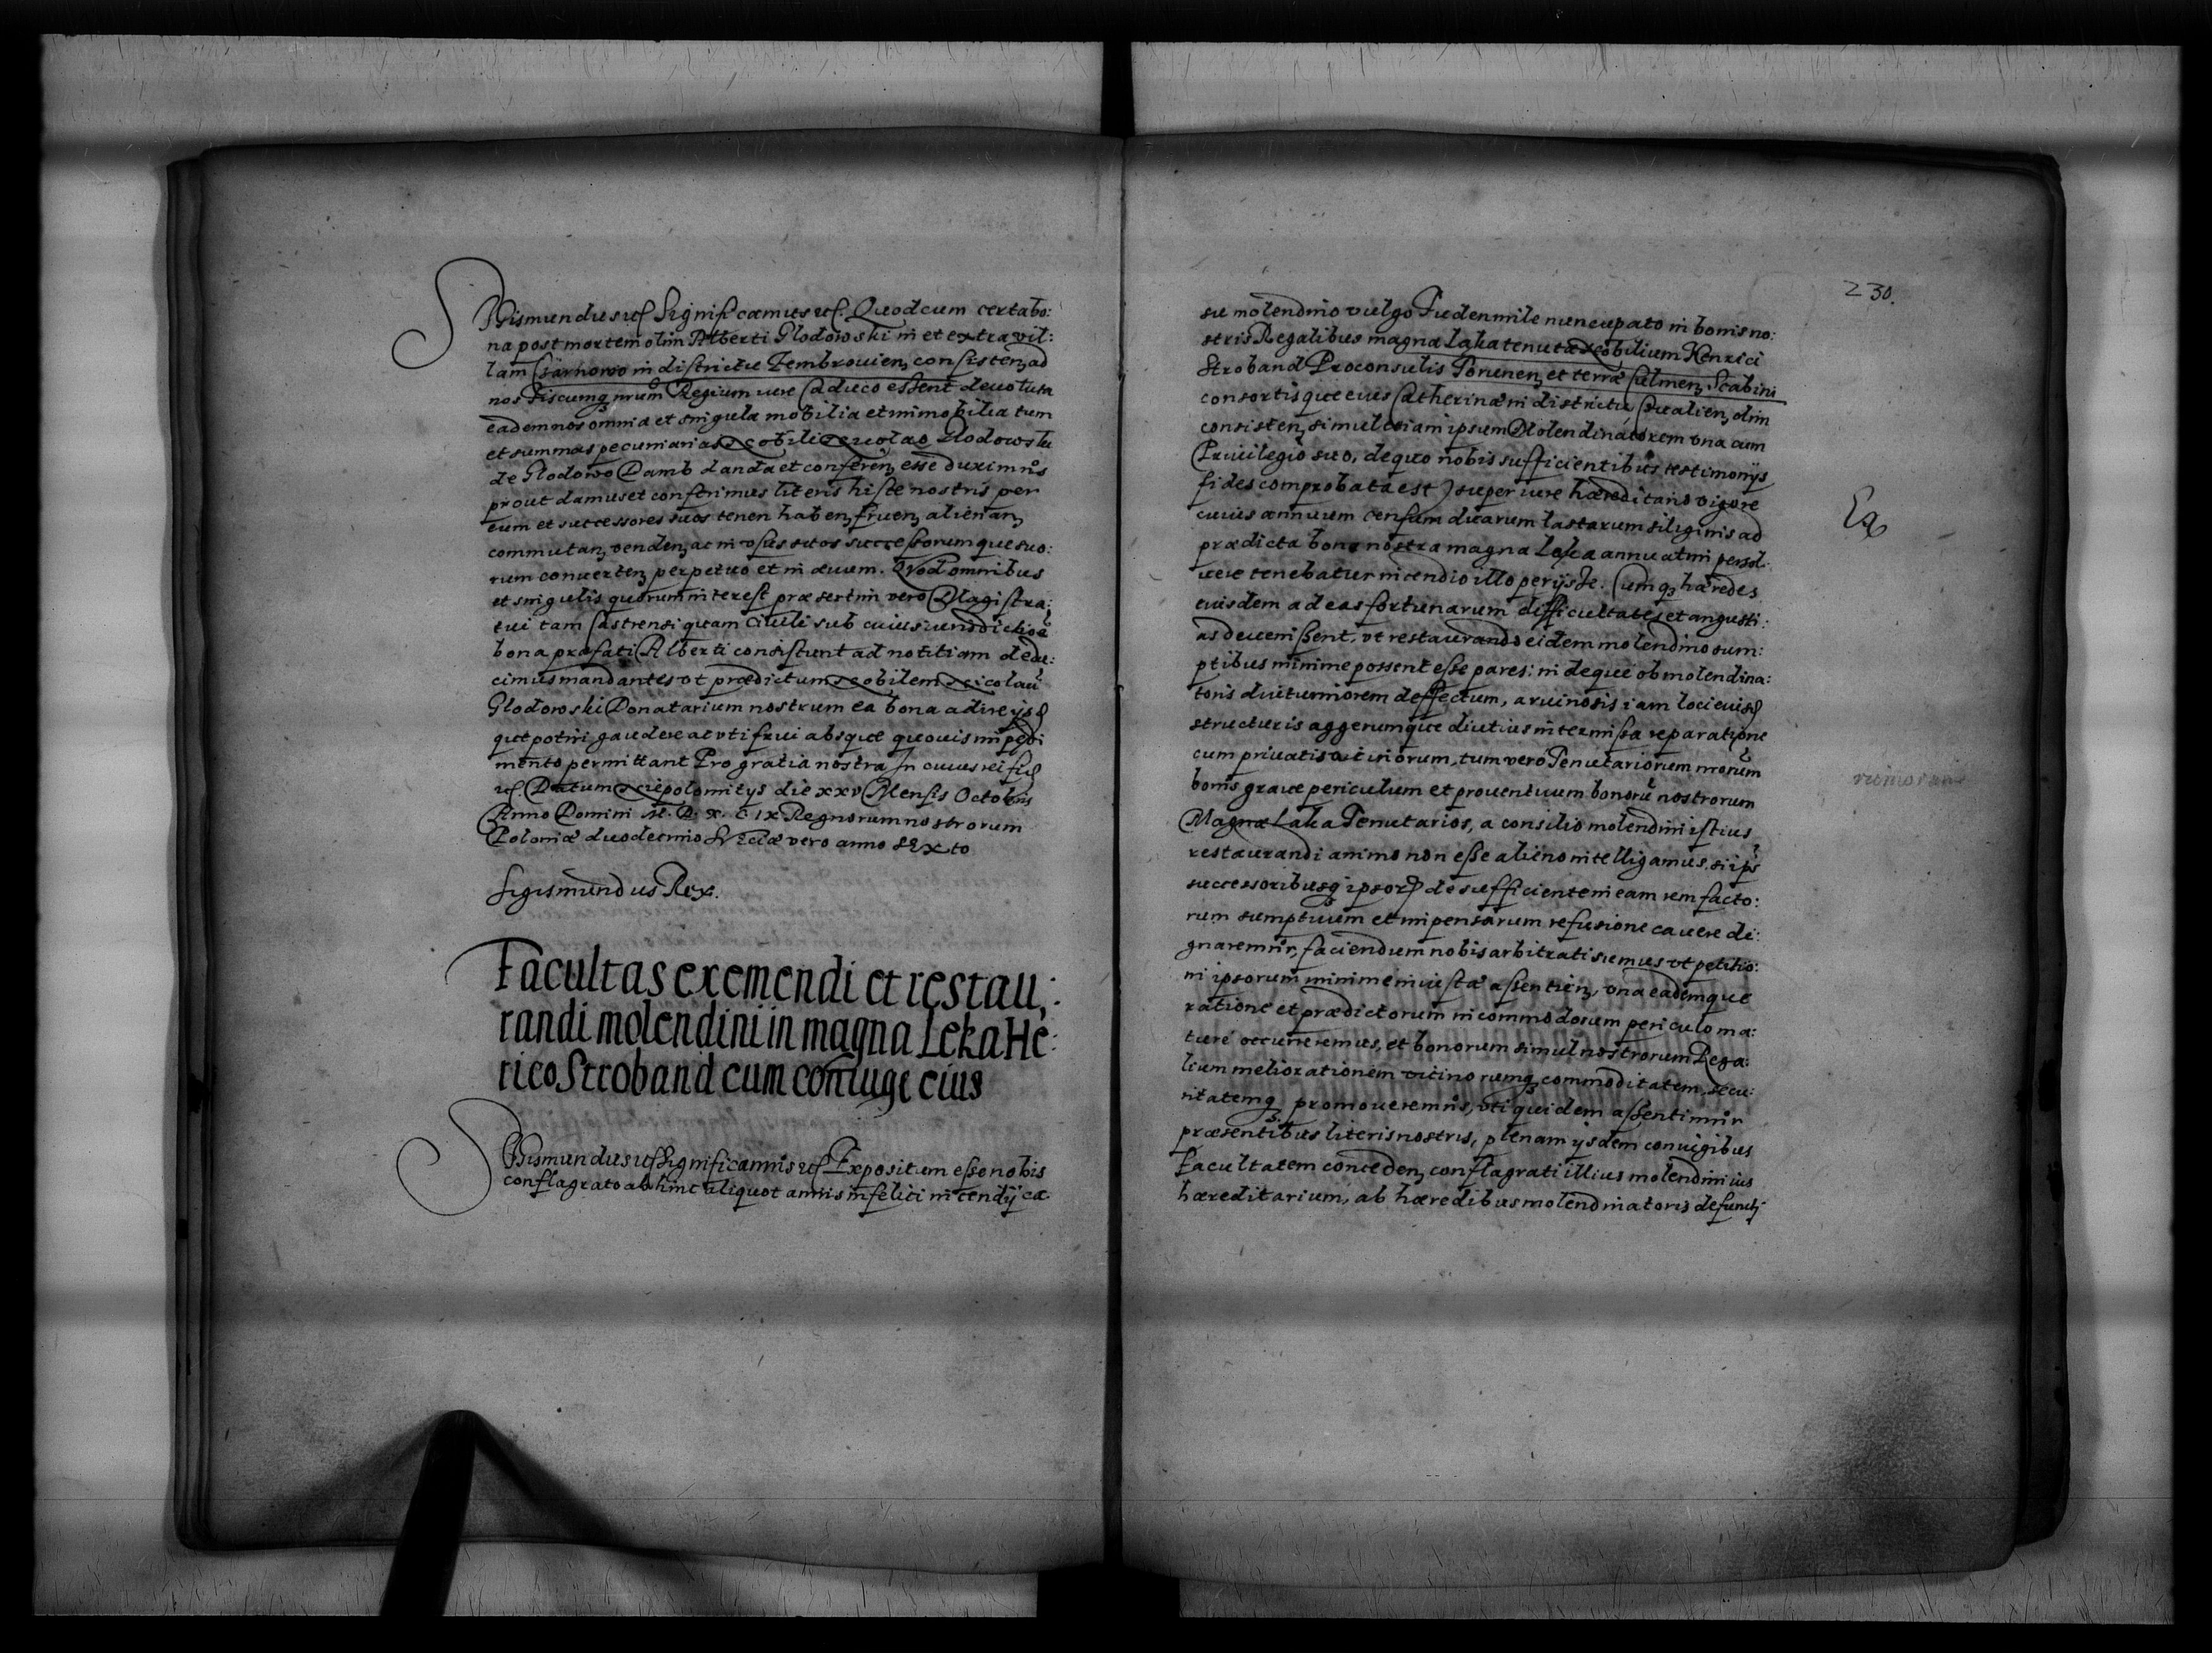 Sigismundus etc Significamus etc. Quod cum certa bo:
na post mortem olim Alberti Glodowski in et extra vil:
lam Czarnowo in districtu Zembrouien, consisten, ad
nos Fiscumq nrum Regium iure Caduco essent deuoluta
eadem nos omnia et singula mobilia et immobilia tum
et summas pecuniarias Nobili Nicolao Glodowski
de Glodowo Damb danda et conferen, esse duximus
prout damus et conferimus literis hisce nostris per
eum et successores suos tenen haben, fruen, alienan,
commutan, venden, ac in usus suos successorumque suo:
rum conuerten, perpetuo et in æuum. Quod omnibus
et singulis quorum interest præsertim vero Magistra:
tui tam Castrensi quam Ciuili sub cuius iurisdictione
bona præfati Alberti consistunt ad notitiam dedu:
cimus mandantes vt prædictum Nobilem Nicolau
Glodowski Donatarium nostrum ea bona adire ijsq
que potiri gaudere ac vti frui absque quouis impedi
mento permittant Pro gratia nostra In cuius rei fid
etc. Datum Niepolomitys die xxv Mensis Octobris
Anno Domini M. D. X. C IX Regnorum nostrorum
Poloniæ duodecimo Sveciæ vero anno sexto
Sigismundus Rex.
Facultas exemendi et restau:
randi molendini in magna Leka He:
rico Stroband cum coniuge eius
Sigismundus etc Significamus etc Expositum esse nobis
conflagrato ab hinc aliquot annis infelici incendij ca
230.
su molendino vulgo Fudenmile nuncupato in bonis no:
stris Regalibus magna Laka tenutæ Nobilium Henrici
Stroband Proconsulis Torunen, et terræ Culmen, Scabini
consortisque eius Catherinæ in districtu olim
consisten, simul etiam ipsum Molendinatorem vna cum
Priuilegio suo, de quo nobis sufficientibus testimonijs
fides comprobata est) super iure hæreditario vigore
cuius annuum censum duarum lastarum siliginis ad
prædicta bona nostra magna Laka annuatim persol:
uere tenebatur incendio illo perijsse. Cumq hæredes
eiusdem ad eas fortunarum difficultates et angusti:
as deuenissent, vt restaurando eidem molendino sum:
ptibus minime possent esse pares: indeque ob molendina:
toris diuturniorem deffectum, a ruinosis iam loci eiusd
structuris aggerumque diutius intermissa reparatione
cum priuatis vicinorum, tum vero Tenutariorum nrorum
bonis graue periculum et prouentuum bonoru nostrorum
Magnæ Laka Tenutarios, a consilio molendini istius
restaurandi animo non esse alieno intelligamus. si ipsis
successoribusq ipsor de sufficiente in eam rem facto:
rum sumptuum et impensarum refusione cauere di:
gnaremur, faciendum nobis arbitrati sumus vt petitio:
ni ipsorum minime iniustæ assentien, vna eademque
ratione et prædictorum incommodorum periculo ma:
ture occurreremus, et bonorum simul nostrorum Rega:
lium meliorationem vicinorumq commoditatem, secu:
ritatemq promoueremus, vti quidem assentimur
præsentibus literis nostris, plenam ijsdem coniugibus
Facultatem conceden, conflagrati illius molendini ius
hæreditarium, ab hæredibus molendinatoris defuncti